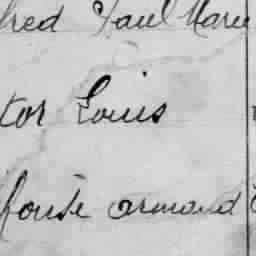 fred Paul Marie
tor Louis
fonse armand